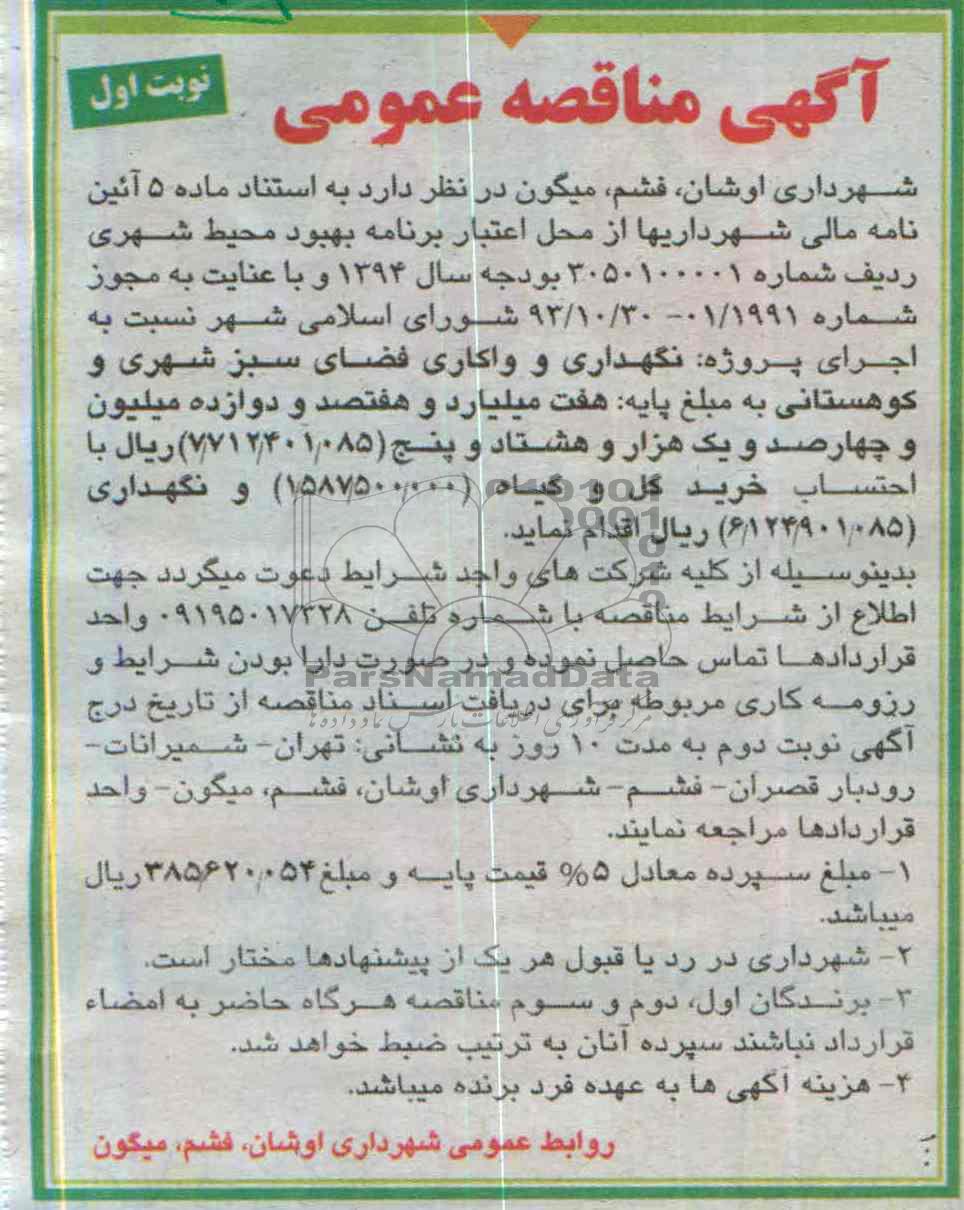 نوبت اول
آگهی مناقصه عمومی
شهرداری اوشان، فشم، میگون در نظر دارد به استناد ماده ۵ آئین
نامه مالی شهرداریها از محل اعتبار برنامه بهبود محیط شهری
ردیف شماره ۳۰۵۰۱۰۰۰۰۱ بودجه سال ۱۳۹۴ و با عنایت به مجوز
شماره ۰۱/۱۹۹۱- ۹۳/۱۰/۳۰ شورای اسلامی شهر نسبت به
اجرای پروژه: نگهداری و واکاری فضای سبز شهری و
کوهستانی به مبلغ پایه: هفت میلیارد و هفتصد و دوازده میلیون
و چهارصد و یک هزار و هشتاد و پنج (۷/۷۱۲/۴۰۱/۰۸۵)ریال با
احتساب خرید گل و گیاه (۱۵۸۷۵۰۰/۰۰۰) و نگهداری
(۶/۱۲۴/۹۰۱/۰۸۵) ریال اقدام نماید.
بدینوسیله از کلیه شرکت های واجد شرایط دعوت میگردد جهت
اطلاع از شرایط مناقصه با شماره تلفن ۰۹۱۹۵۰۱۷۳۲۸ واحد
قراردادها تماس حاصل نموده و در صورت دارا بودن شرایط و
رزومه کاری مربوطه برای دریافت اسناد مناقصه از تاریخ درج
آگهی نوبت دوم به مدت ۱۰ روز به نشانی: تهران- شمیرانات-
رودبار قصران- فشم- شهرداری اوشان، فشم، میگون- واحد
قراردادها مراجعه نمایند.
۱- مبلغ سپرده معادل ۵% قیمت پایه و مبلغ۳۸۵/۶۲۰/۰۵۴ریال
میباشد.
۲- شهرداری در رد یا قبول هر یک از پیشنهادها مختار است.
۳- برندگان اول، دوم و سوم مناقصه هرگاه حاضر به امضاء
قرارداد نباشند سپرده آنان به ترتیب ضبط خواهد شد.
۴- هزینه آگهی ها به عهده فرد برنده میباشد.
روابط عمومی شهرداری اوشان، فشم، میگون
ParsNamadData
مرکز فرآوری اطلاعات پارس نماد داده ها